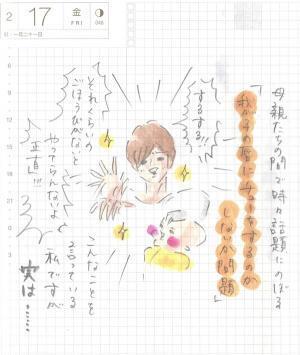 2
17
金
FRI
048
母親たちの間で時々話題にのぼる
「我が子の唇にチューをするのか
しないか問題」
するする!!
それくらいの
ごほうびがないと
やってらんないよ
正直!!!
こんなことを
言っている
私ですが
実は……